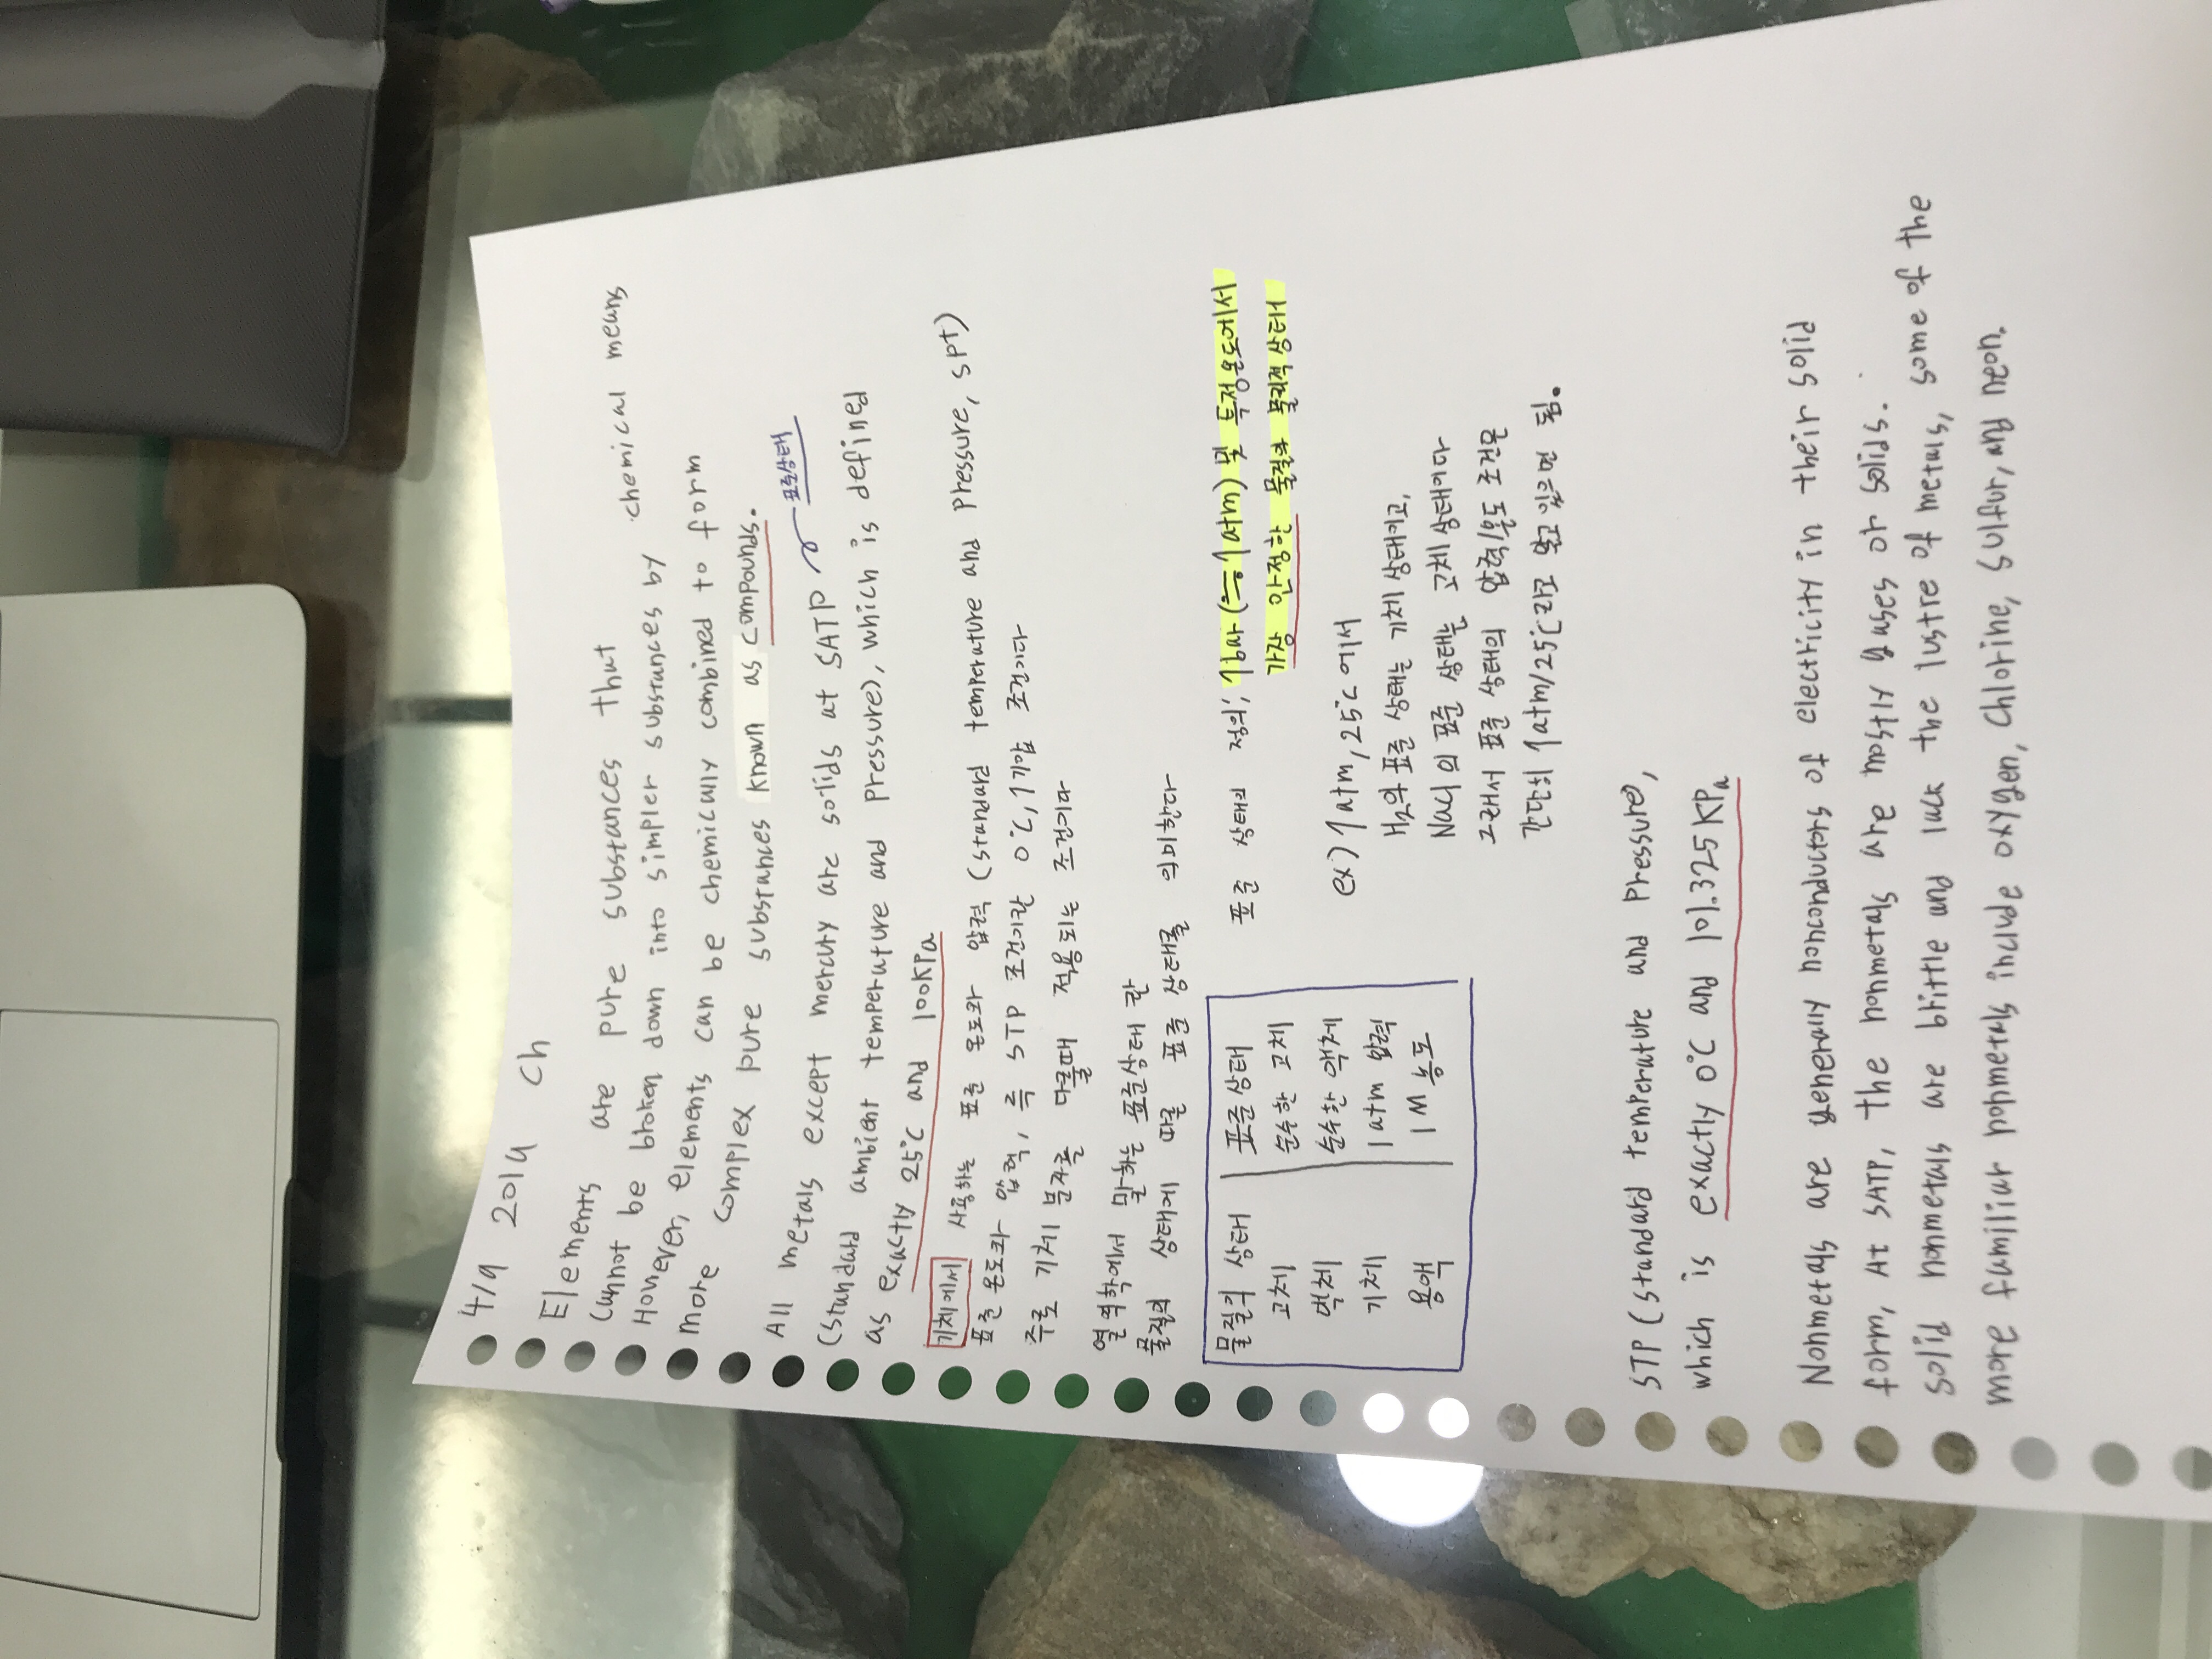 4/9 2019 Ch
Elements are pure substances that
cannot be broken down into simpler substances by chemical means
However, elements can be chemically combined to form
more complex pure substances known as compounds.
All metals except mercury are solids at SATP 표준상태
(standard ambient temperature and pressure), which is defined
as exactly 25°C and 100KPa
기체에서 사용하는 표준 온도와 압력 (standard temperature and pressure, spt)
표준 온도와 압력, 즉 STP 조건이란 0°C, 1기압 조건이다
주로 기체 분자를 다룰때 적용되는 조건이다
열역학에서 말하는 표준상태 란
물질의 상태에 따른 표준 상태를 의미한다
물질의 상태 표준상태
고체 순수한 고체
액체 순수한 액체
기체 1atm 압력
용액 1M 농도
표준 상태의 정의, 1bar (≒1atm) 및 특정온도에서
가장 안정한 물질의 물리적 상태
ex) 1atm, 25°C 에서
H₂의 표준 상태는 기체 상태이고,
NaCl 의 표준 상태는 고체 상태이다
그래서 표준 상태의 압력/온도 조건은
간단히 1atm/25°C라고 알고 있으면 됨.
STP (standard temperature and pressure),
which is exactly 0°C and 101.325KPa
Nonmetals are generally nonconductors of electricity in their solid
form, At SATP, the nonmetals are mostly gases or solids.
Solid nonmetals are brittle and lack the lustre of metals, some of the
more familiar nonmetals include oxygen, Chlorine, sulfur, and neon.